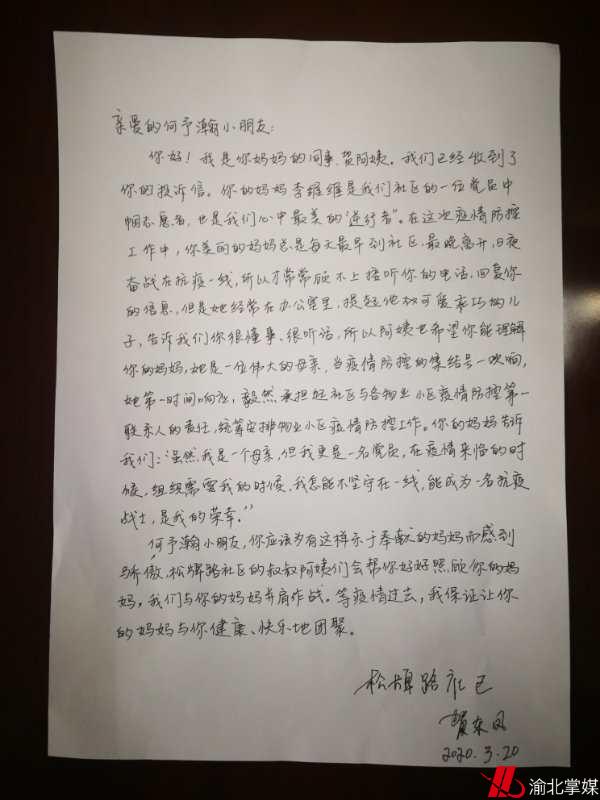 亲爱的何予瀚小朋友：
你好！我是你妈妈的同事，贺阿姨。我们已经收到了
你的投诉信。你的妈妈李维维是我们社区的一位党员巾
帼志愿者，也是我们心中最美的“逆行者”。在这次疫情防控
工作中，你美丽的妈妈总是每天最早到社区，最晚离开，日夜
奋战在抗疫一线，所以才常常顾不上接听你的电话，回复你
的信息，但是她经常在办公室里，提起他权可爱乖巧的儿
子，告诉我们你很懂事、很听话，所以阿姨也希望你能理解
你的妈妈，她是一位伟大的母亲，当疫情防控的集结号一吹响，
她第一时间响应，毅然承担起社区与各物业小区疫情防控第一
联系人的责任，统筹安排物业小区疫情防控工作。你的妈妈告诉
我们：“虽然我是一个母亲，但我更是一名党员，在疫情来临的时
候，组织需要我的时候，我怎能不坚守在一线，能成为一名抗疫
战士，是我的荣幸。”
何予瀚小朋友，你应该为有这样乐于奉献的妈妈而感到
骄傲，松牌路社区的叔叔阿姨们会帮你好好照顾你的妈
妈，我们与你的妈妈并肩作战。等疫情过去，我保证让你
的妈妈与你健康、快乐地团聚。
松牌路社区
2020.3.20
渝北掌媒